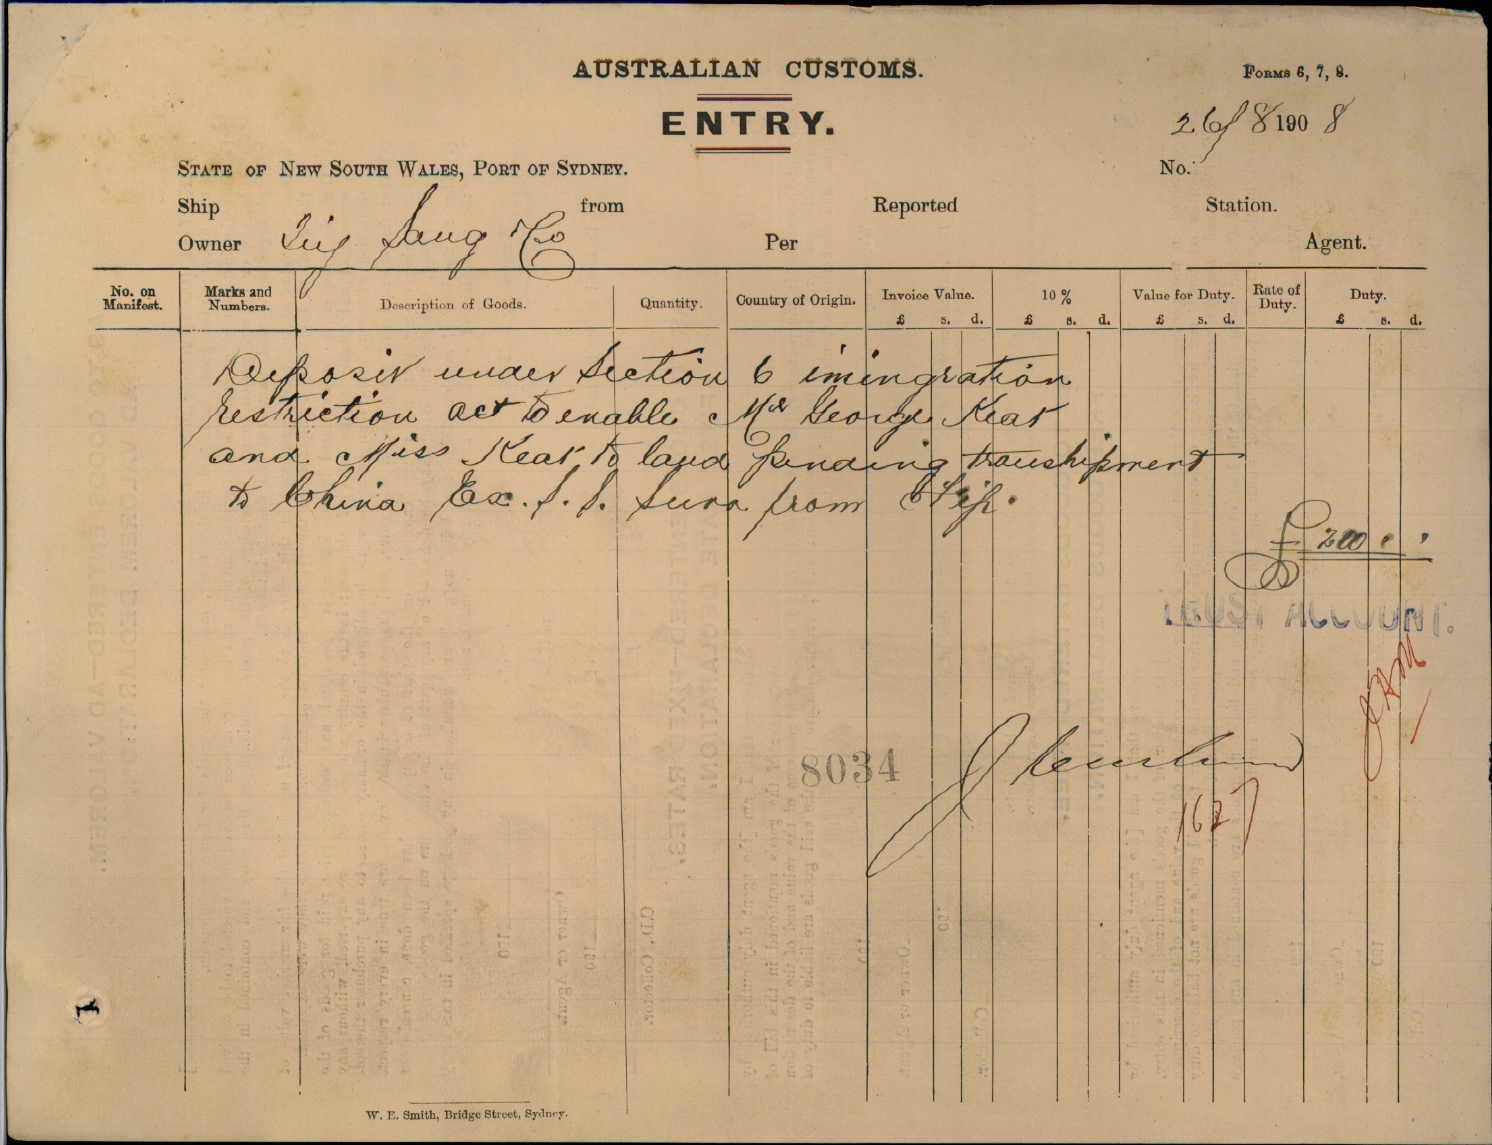 AUSTRALIAN CUSTOMS.
FORMS 6, 7, 8.
ENTRY.
26/8 1908
STATE OF NEW SOUTH WALES, PORT OF SYDNEY.
No.
Ship from Reported Station.
Owner Tiy Sang & Co Per Agent.
No. on Manifest. Marks and Numbers. Description of Goods. Quantity. Country of Origin. Invoice Value. 10 % Value for Duty. Rate of Duty. Duty.
£ s. d. £ s. d. £ s. d. £ s. d.
Deposit under Section 6 imingration
restriction act to enable Mr George Keat
and Miss Keat to land pending transhipment
to China Ex. S.S. Suva from Fiji.
£200 . .
TRUST ACCOUNT.
8034
1627
W. E. Smith, Bridge Street, Sydney.